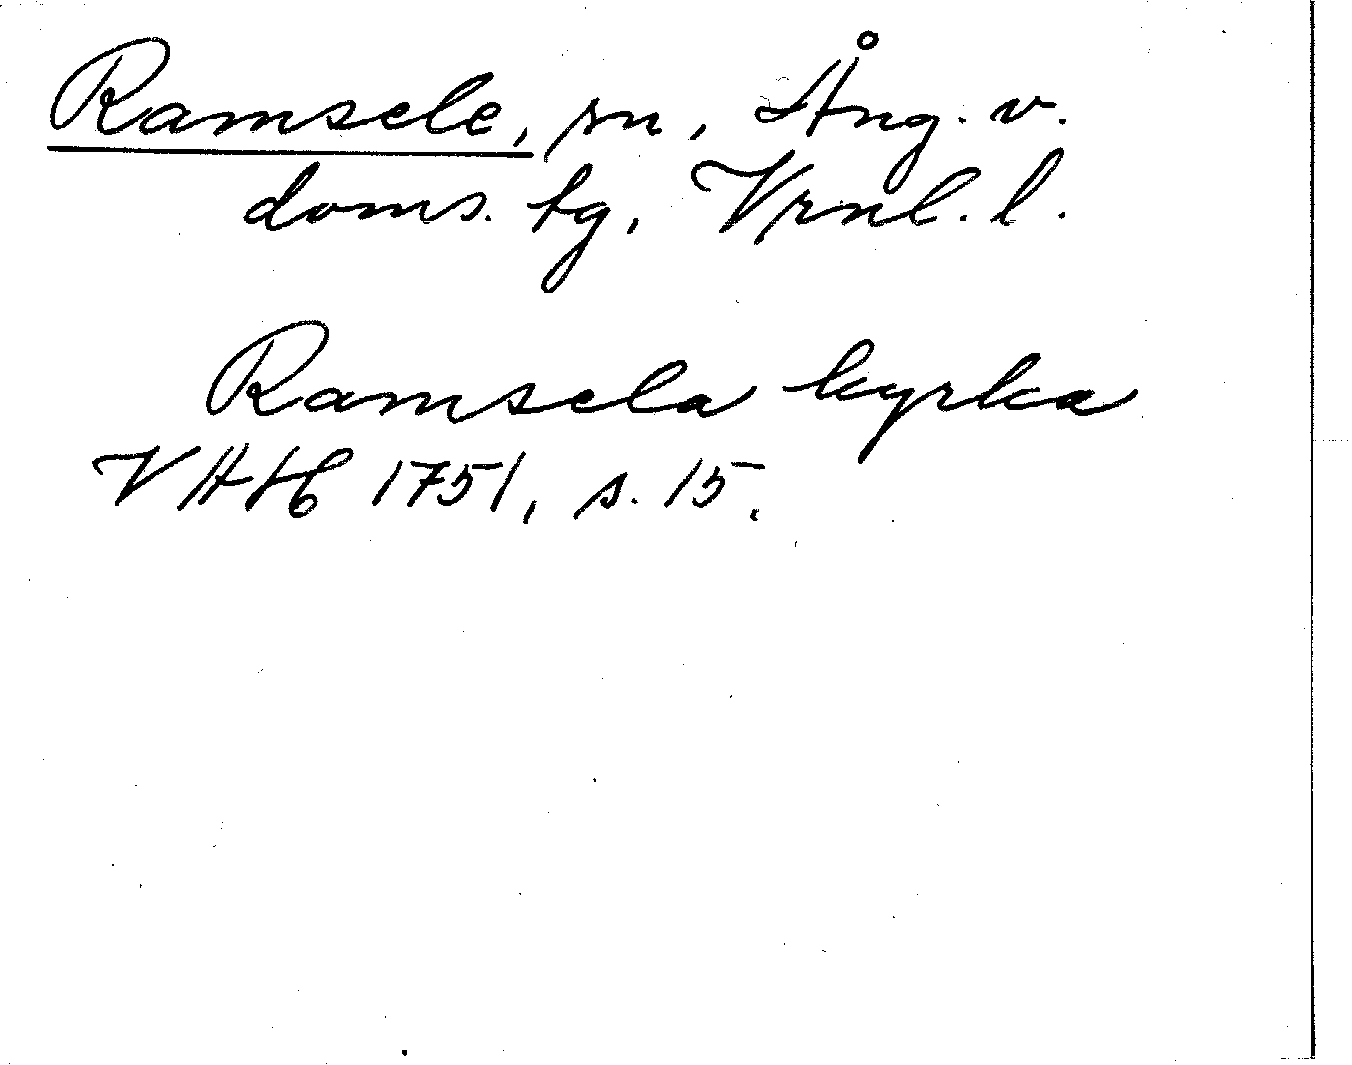 Ramsele, sn, Ång. v.
doms. tg, Vrnl. l.
Ramsela kyrka
VHAH 1751, s. 15.